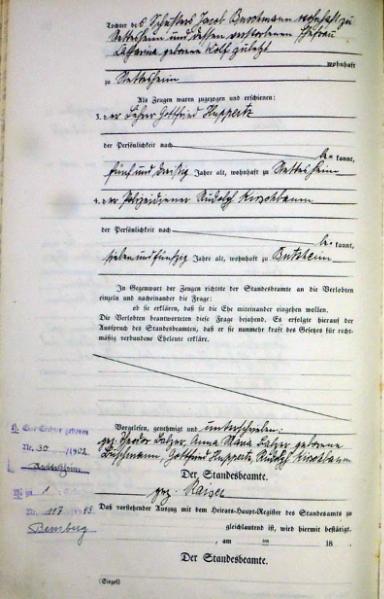 Tochter des Schusters Jacob Buschmann wohnhaft zu
Nettesheim und dessen verstorbenen Ehefrau
Catharina geborene Wolf zuletzt
wohnhaft
zu Nettesheim
Als Zeugen waren zugezogen und erschienen:
3. der Lehrer Gottfried Huppertz
der Persönlichkeit nach
be kannt,
fünf und dreißig Jahre alt, wohnhaft zu Nettesheim
4. der Polizeidiener Rudolf Kirschbaum
der Persönlichkeit nach
be kannt,
sieben und fünfzig Jahre alt, wohnhaft zu Butzheim
In Gegenwart der Zeugen richtete der Standesbeamte an die Verlobten
einzeln und nacheinander die Frage:
ob sie erklären, daß sie die Ehe miteinander eingehen wollen.
Die Verlobten beantworteten diese Frage bejahend. Es erfolgte hierauf der
Ausspruch des Standesbeamten, daß er sie nunmehr kraft des Gesetzes für recht-
mäßig verbundene Eheleute erkläre.
Vorgelesen, genehmigt und unterschrieben:
gez. Theodor Balzer, Anna Maria Balzer geborene
Buschmann, Gottfried Huppertz, Rudolf Kirschbaum
Der Standesbeamte.
gez.
Daß vorstehender Auszug mit dem Heirats-Haupt-Register des Standesamts zu
gleichlautend ist, wird hiermit bestätigt.
, am ten 18 .
Der Standesbeamte.
(Siegel)
geboren
Nr. 30 /1902
Nettesheim
1
Nr. 117
Bensberg